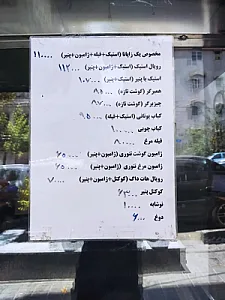 مخصوص یک زاپاتا (استیک+فیله+ژامبون+پنیر) ۱۱۰٫۰۰۰
رویال استیک (استیک+ژامبون+پنیر) ۱۱۲٫۰۰۰
استیک با پنیر (استیک+پنیر) ۱۰۷٫۰۰۰
همبرگر (گوشت تازه)
چیزبرگر (گوشت تازه) ۸۷٫۰۰۰
کباب یونانی (استیک+فیله) ۹۵٫۰۰۰
کباب چوبی ۱۰۰٫۰۰۰
فیله مرغ ۸۰٫۰۰۰
ژامبون گوشت تنوری (ژامبون+پنیر) ۷۵٫۰۰۰
ژامبون مرغ تنوری (ژامبون+پنیر) ۶۵٫۰۰۰
رویال هات داگ (کوکتل+ژامبون+پنیر) ۷۰٫۰۰۰
کوکتل پنیر ۶۳٫۰۰۰
نوشابه ۱۰٫۰۰۰
دوغ ۶٫۰۰۰